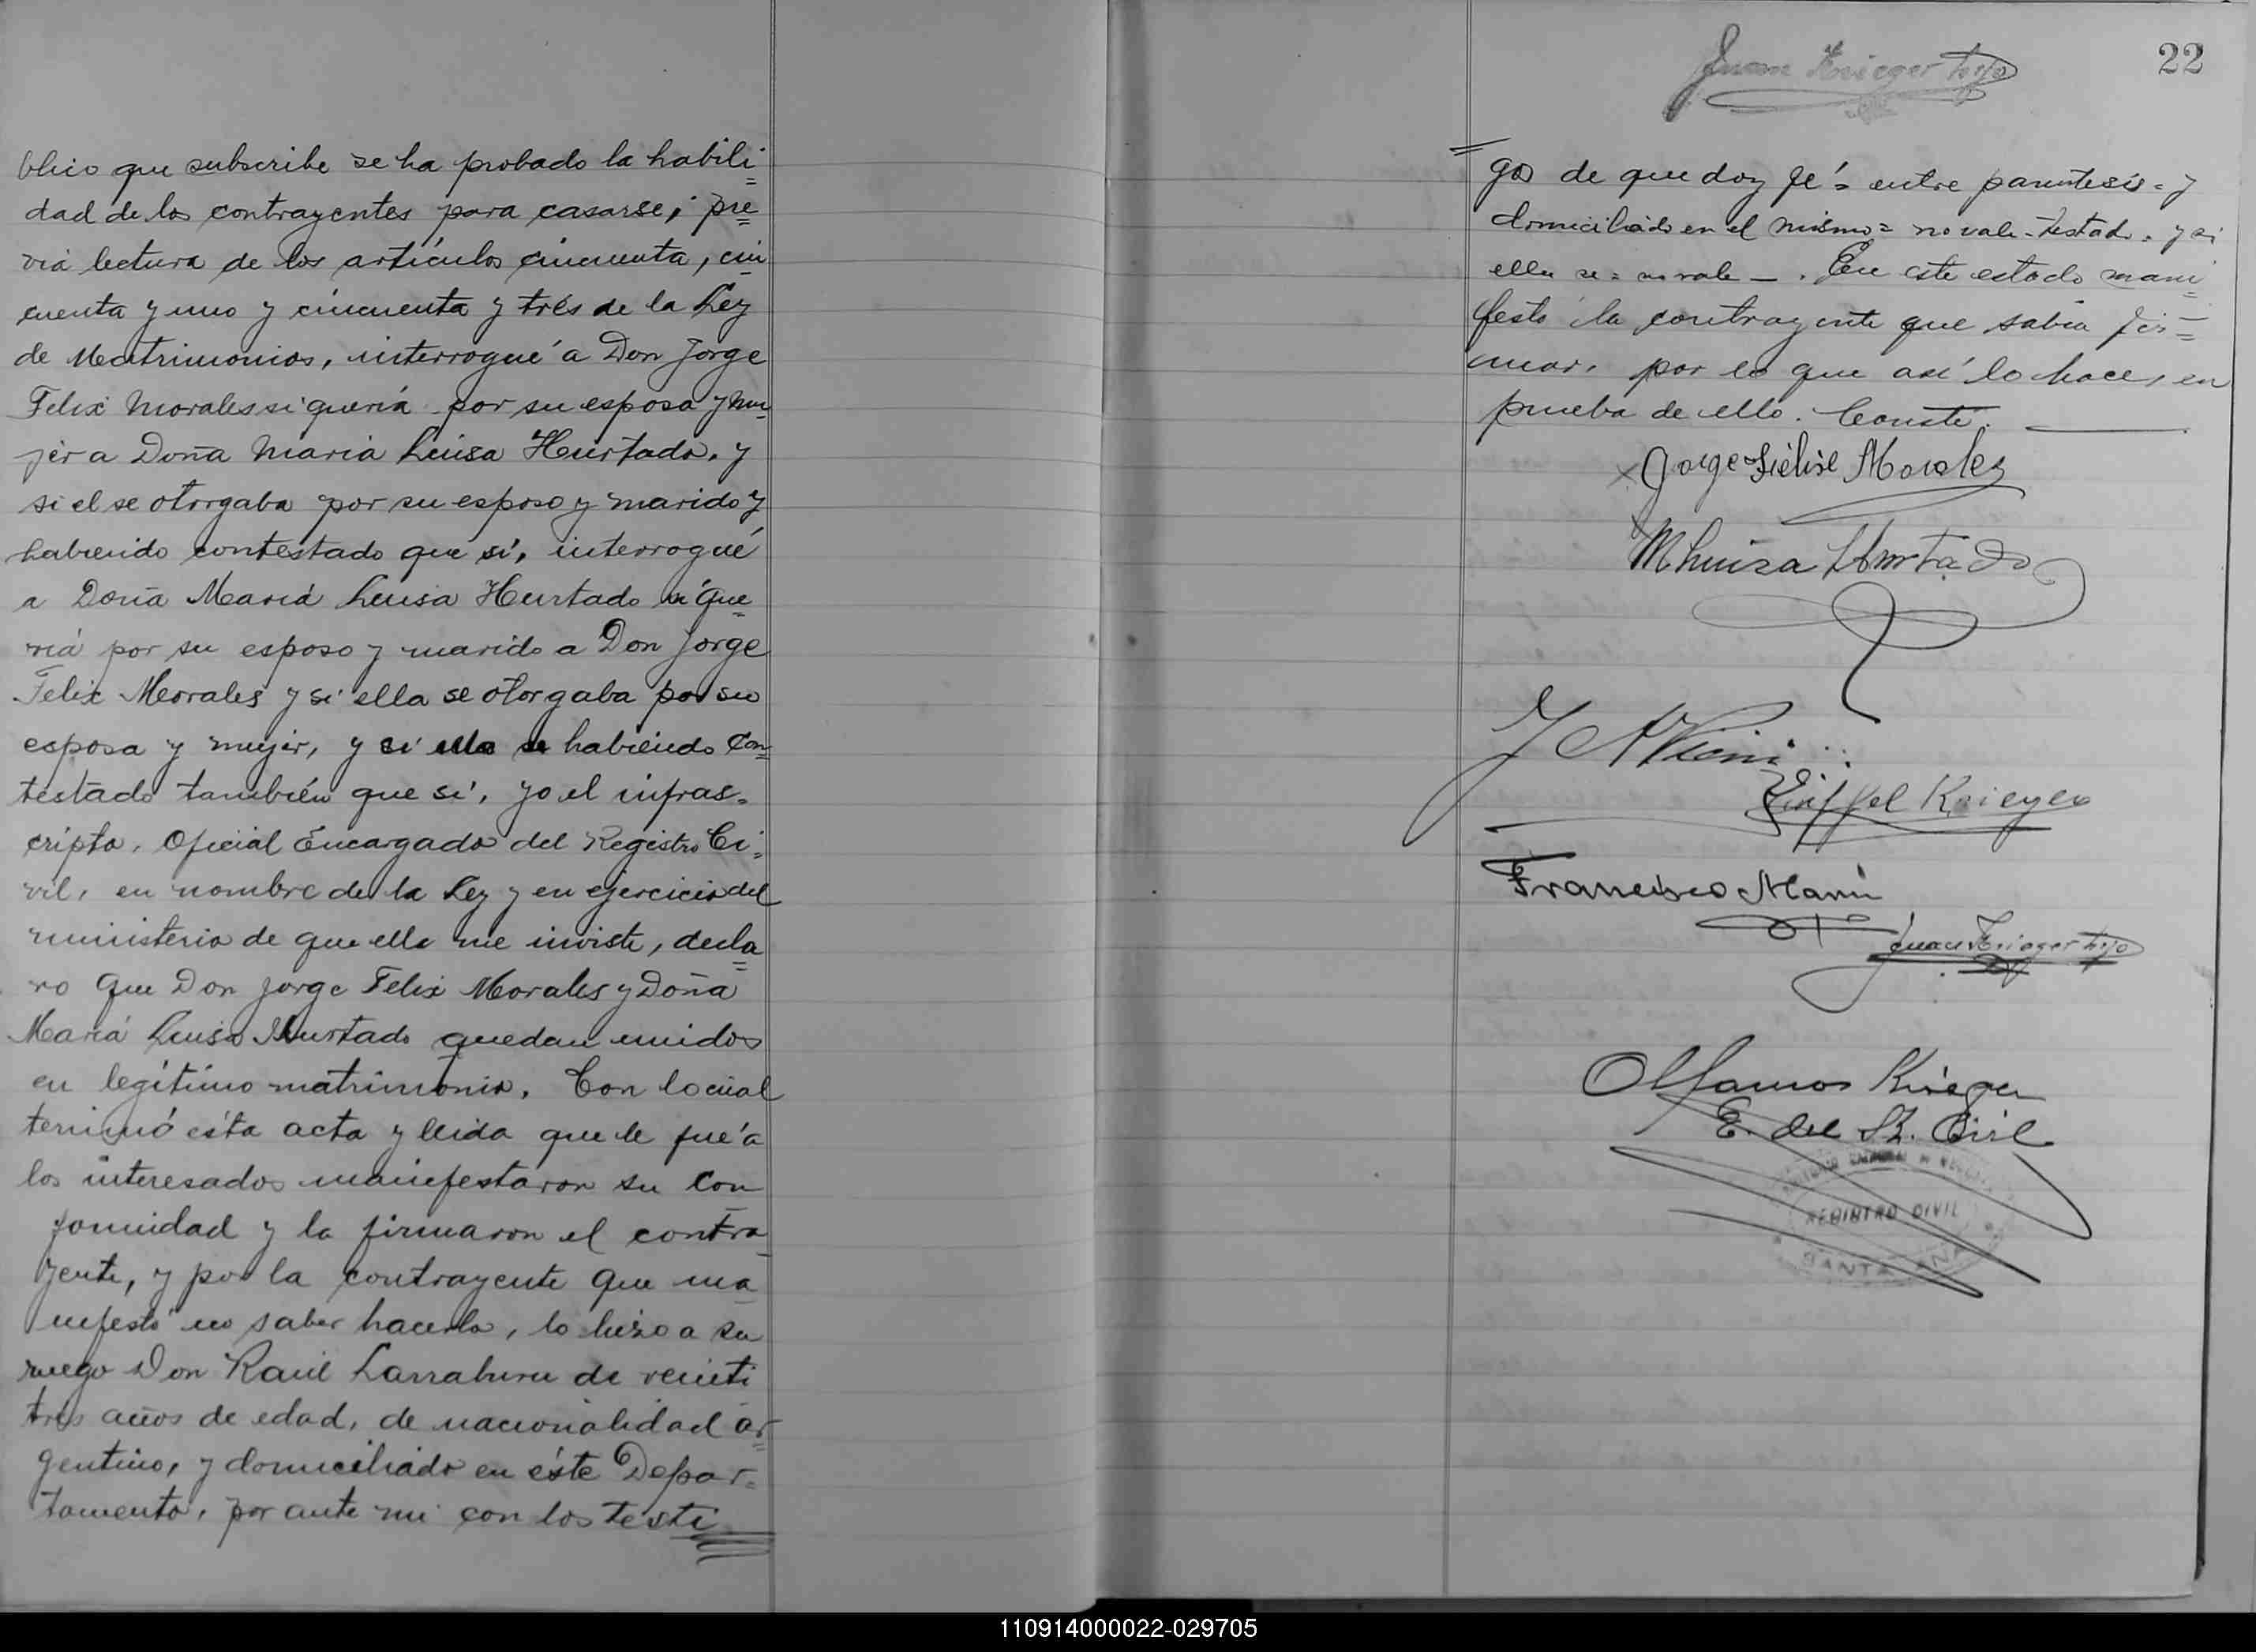 blico que subscribe se ha probado la habili=
dad de los contrayentes para casarse, pre=
via lectura de los artículos cincuenta, cin
cuenta y uno y cincuenta y trés de la Ley
de Matrimonios, interrogué a Don Jorge
Felix Morales si quería por su esposa y mu=
jer a Doña María Luisa Hurtado, y
si el se otorgaba por su esposo y marido y
habiendo contestado que sí, interrogué
a Doña María Luisa Hurtado si que=
ría por su esposo y marido a Don Jorge
Felix Morales y si ella se otorgaba por su
esposa y mujer, y si ella se habiendo con=
testado también que sí, yo el infras=
cripto, Oficial Encargado del Registro Ci=
vil, en nombre de la Ley y en ejercicio del
ministerio de que ella me inviste, decla=
ro que Don Jorge Felix Morales y Doña
María Luisa Hurtado quedan unidos
en legítimo matrimonio. Con lo cual
terminó ésta acta y leida que le fué a
los interesados manifestaron su con
formidad y la firmaron el contra
yente, y por la contrayente que ma
nifestó no saber hacerlo, lo hizo a su
ruego Don Raúl Larraburu de veinti
trés años de edad, de nacionalidad ar=
gentino, y domiciliado en éste Depar=
tamento, por ante mi con los testi
Juan Krieger hijo
22
gos de que doy fé = entre parentesis = y
domiciliado en el mismo = no vale - testado = y si
ella se = no vale - . En este estado mani
festó la contrayente que sabía fir=
mar, por lo que así lo hace, en
prueba de ello. Conste.
x Jorge Felix Morales
x M Luisa Hurtado
Krieger
Francisco Marin
Juan Krieger hijo
Krieger
E. del R. Civil
REGISTRO CIVIL
SANTA ANA
110914000022-029705